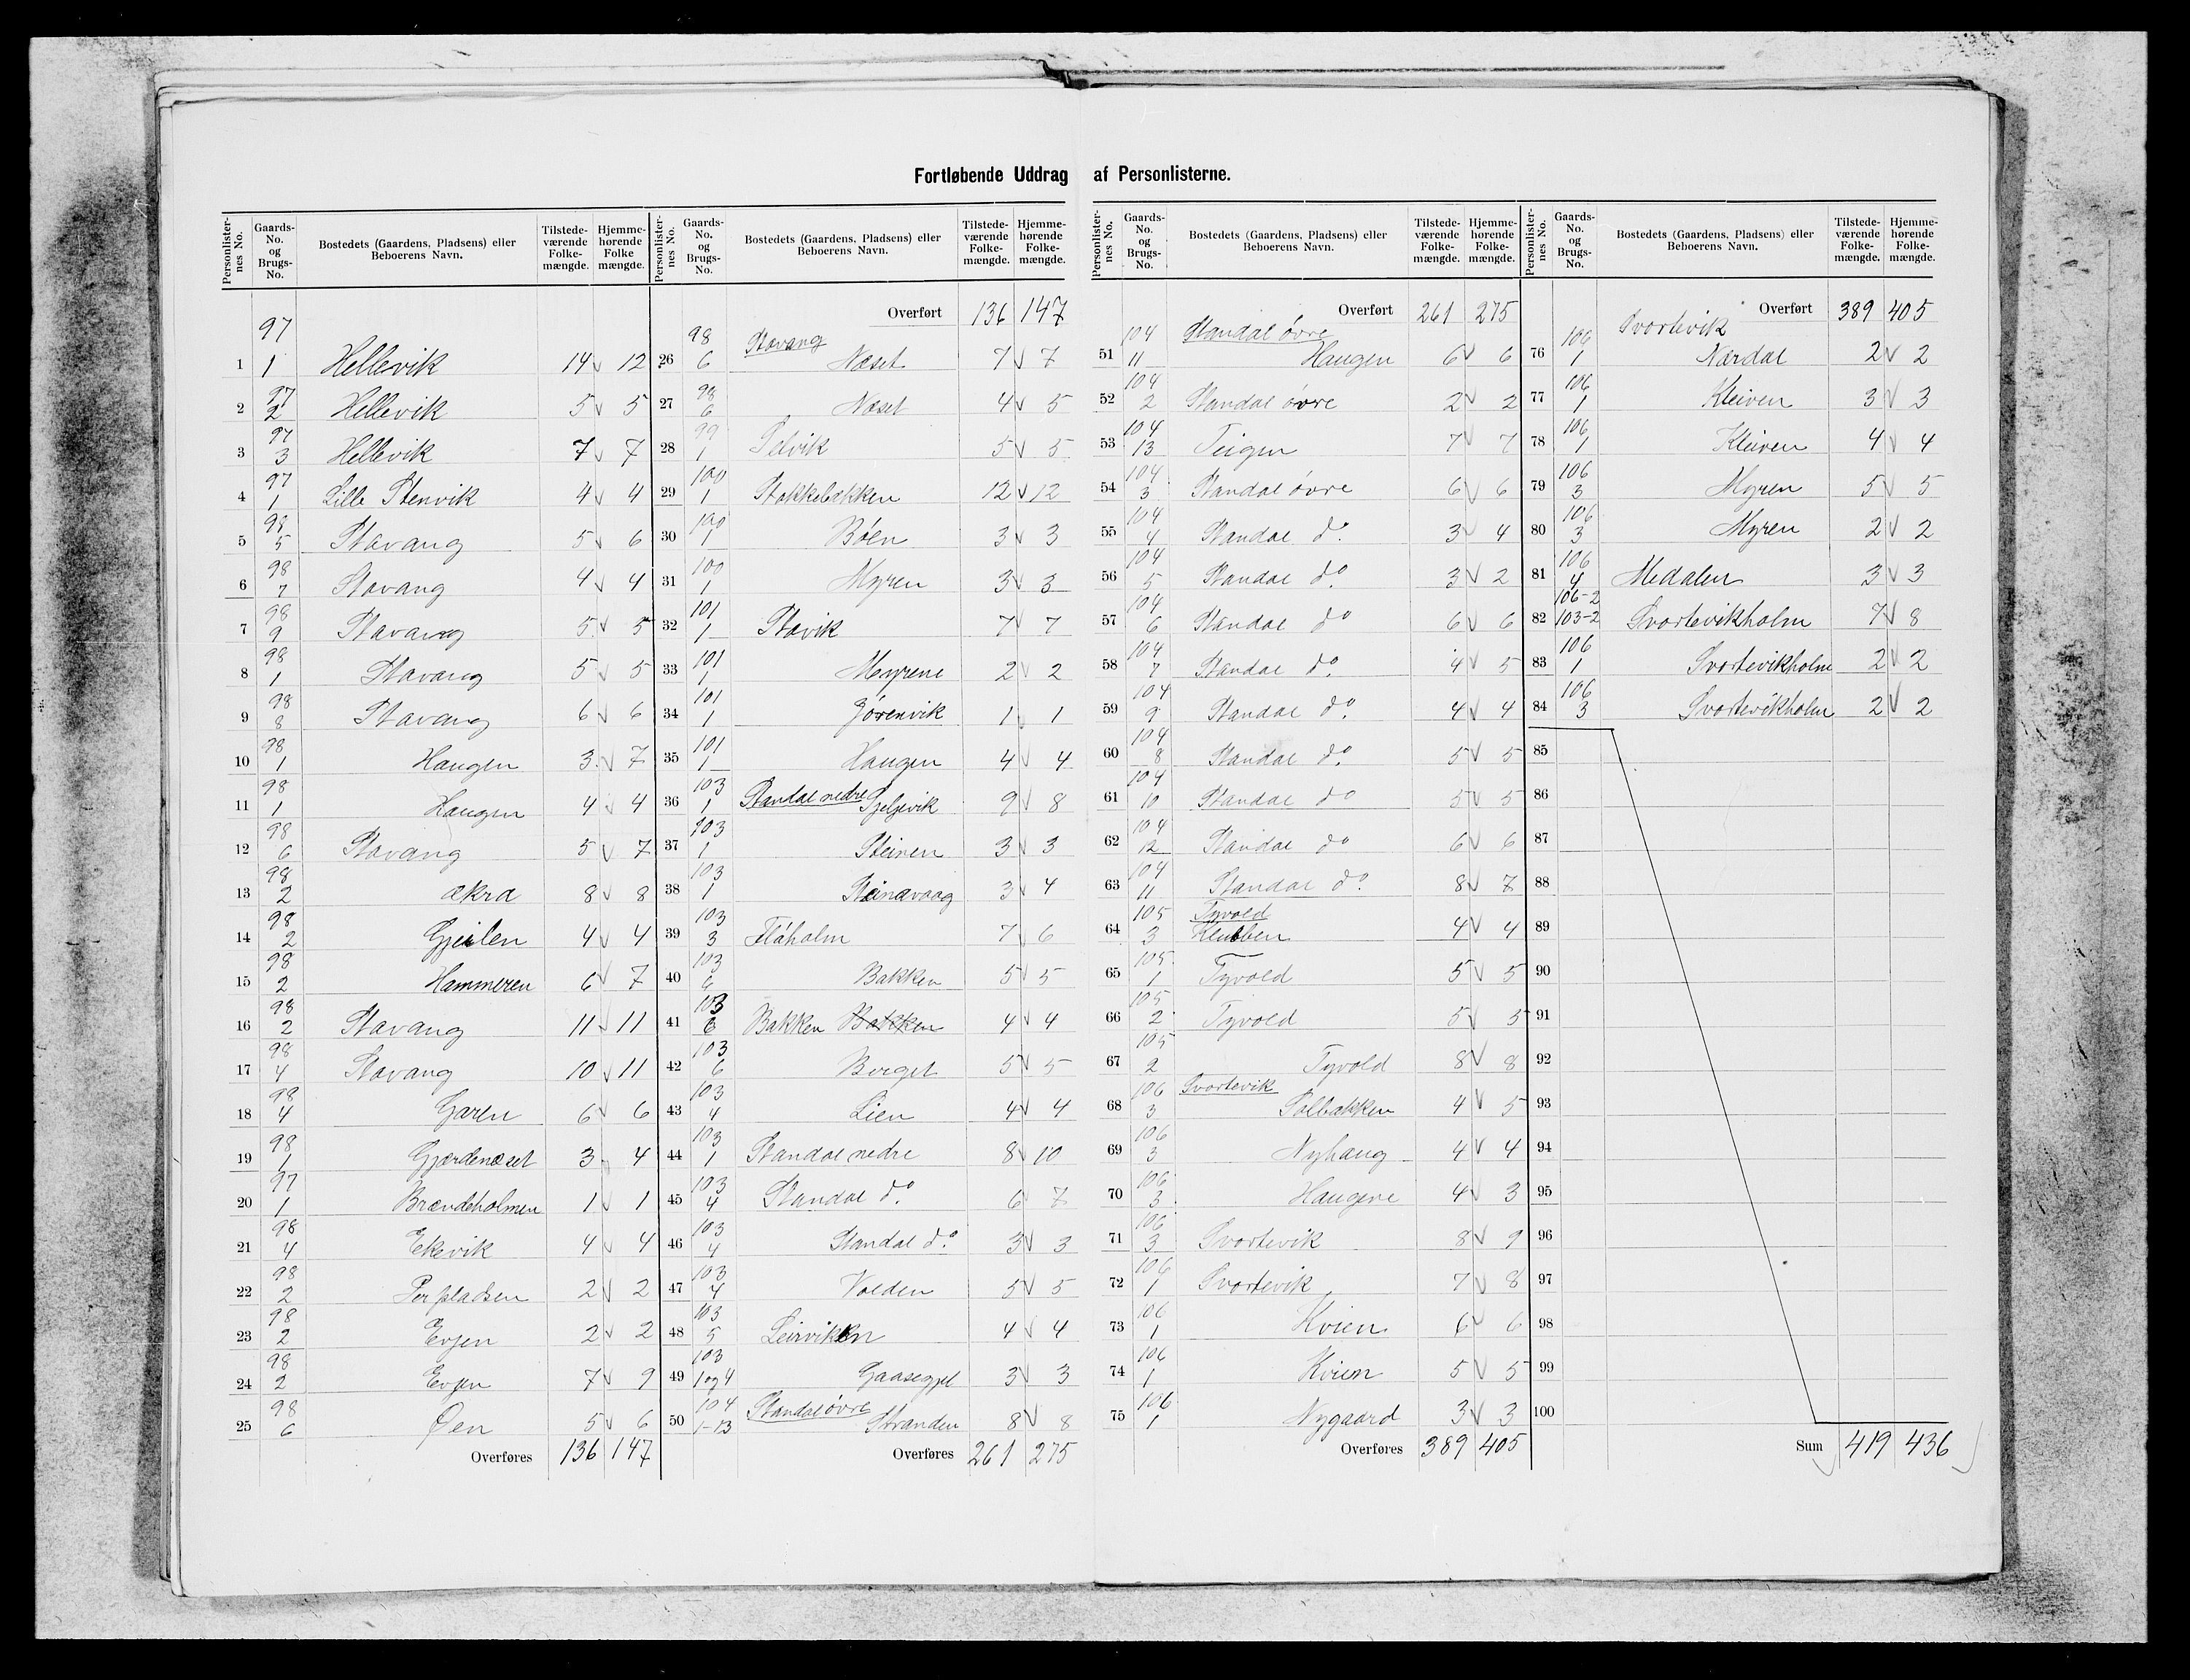 Fortløbende Uddrag af Personlisternе.
Personlister-nes No. Gaards-No. og Brugs-No. Bostedets (Gaardens, Pladsens) eller Beboerens Navn. Tilstede-værende Folke-mængde. Hjemme-hørende Folke mængde.
1 97 1 Hellevik 14 12
2 97 2 Hellevik 5 5
3 97 3 Hellevik 7 7
4 97 1 Lille Stenvik 4 4
5 98 5 Stavang 5 6
6 98 7 Stavang 4 4
7 98 9 Stavang 5 5
8 98 1 Stavang 5 5
9 98 8 Stavang 6 6
10 98 1 Haugen 3 7
11 98 1 Haugen 4 4
12 98 6 Stavang 5 7
13 98 2 Ækra 8 8
14 98 2 Gjeilen 4 4
15 98 2 Hammeren 6 7
16 98 2 Stavang 11 11
17 98 4 Stavang 10 11
18 98 4 Garen 6 6
19 98 1 Gjærdenæset 3 4
20 97 1 Brændeholmen 1 1
21 98 4 Ekevik 4 4
22 98 2 Perpladsen 2 2
23 98 2 Evjen 2 2
24 98 2 Evjen 7 9
25 98 6 Øen 5 6
Overføres 136 147
Personlister-nes No. Gaards-No. og Brugs-No. Bostedets (Gaardens, Pladsens) eller Beboerens Navn. Tilstede-værende Folke-mængde. Hjemme-hørende Folke-mængde.
Overført 136 147
26 98 6 Stavang Næset 7 7
27 98 6 Næset 4 5
28 99 1 Selvik 5 5
29 100 1 Stokkebækken 12 12
30 100 1 Bøen 3 3
31 100 1 Myren 3 3
32 101 1 Stavik 7 7
33 101 1 Myrene 2 2
34 101 1 Jørenvik 1 1
35 101 1 Haugen 4 4
36 103 1 Standal nedre Gjeljevik 9 8
37 103 1 Steinen 3 3
38 103 1 Steinavaag 3 4
39 103 3 Flåholm 7 6
40 103 6 Bakken 5 5
41 103 6 Bakken Bakken 4 4
42 103 6 Berget 5 5
43 103 4 Lien 4 4
44 103 1 Standal nedre 8 10
45 103 4 Standal do. 6 7
46 103 4 Standal do. 3 3
47 103 4 Volden 5 5
48 103 5 Leirvikken 4 4
49 103 1 og 4 3 3
50 104 1-13 Standal øvre Stranden 8 8
Overføres 261 275
Personlister-nes No. Gaards-No. og Brugs-No. Bostedets (Gaardens, Pladsens) eller Beboerens Navn. Tilstede-værende Folke-mængde. Hjemme-hørende Folke-mængde.
Overført 261 275
51 104 11 Standal øvre Haugen 6 6
52 104 2 Standal øvre 2 2
53 104 13 Teigen 7 7
54 104 3 Standal øvre 6 6
55 104 4 Standal do. 3 4
56 104 5 Standal do. 3 2
57 104 6 Standal do 6 6
58 104 7 Standal do. 4 5
59 104 9 Standal do. 4 4
60 104 8 Standal do. 5 5
61 104 10 Standal do 5 5
62 104 12 Standal do 6 6
63 104 11 Standal do. 8 7
64 105 3 Tyvold Klubben 4 4
65 105 1 Tyvold 5 5
66 105 2 Tyvold 5 5
67 105 2 Tyvold 8 8
68 106 3 Svortevik Solbakken 4 5
69 106 3 Nyhaug 4 4
70 106 3 Haugene 4 3
71 106 3 Svortevik 8 9
72 106 1 Svortevik 7 8
73 106 1 Kvien 6 6
74 106 1 Kvien 5 5
75 106 1 Nygaard 3 3
Overføres 389 405
Personlister-nes No. Gaards-No. og Brugs-No. Bostedets (Gaardens, Pladsens) eller Beboerens Navn. Tilstede-værende Folke-mængde. Hjemme-hørende Folke-mængde.
Overført 389 405
76 106 1 Svortevik Nærdal 2 2
77 106 1 Kleiven 3 3
78 106 1 Kleiven 4 4
79 106 3 Myren 5 5
80 106 3 Myren 2 2
81 106 4 Medalen 3 3
82 106-2 103-2 Svortevikholm 7 8
83 106 1 Svortevikholm 2 2
84 106 3 Svortevikholm 2 2
85
86
87
88
89
90
91
92
93
94
95
96
97
98
99
100
Sum 419 436